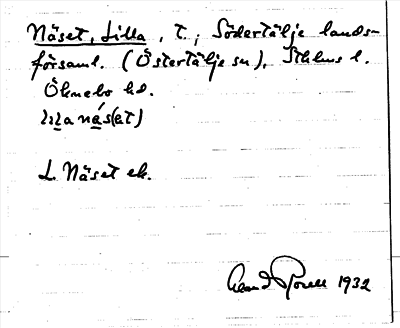 Näset, Lilla, t., Södertälje lands-
församl. (Östertälje sn), Sthlms l.
Öknebo hd.
lıla nä́s(et)
L. Näset ek.
1932